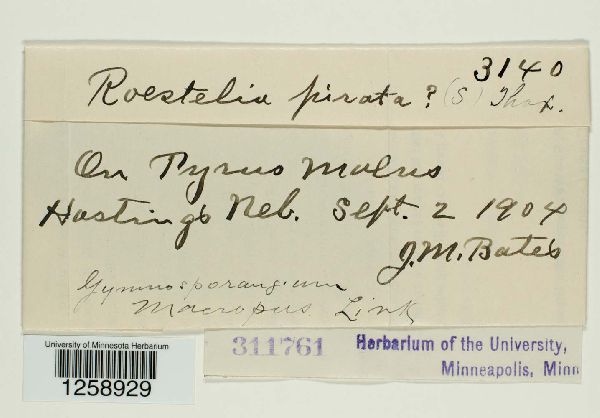 3140
Roestelia pirata? (S) Thax.
On Pyrus Malus
Hastings Neb. Sept. 2 1904
J.M. Bates
Gymnosporangium
macropus Link
University of Minnesota Herbarium
1258929
311761 Herbarium of the University,
Minneapolis, Minn